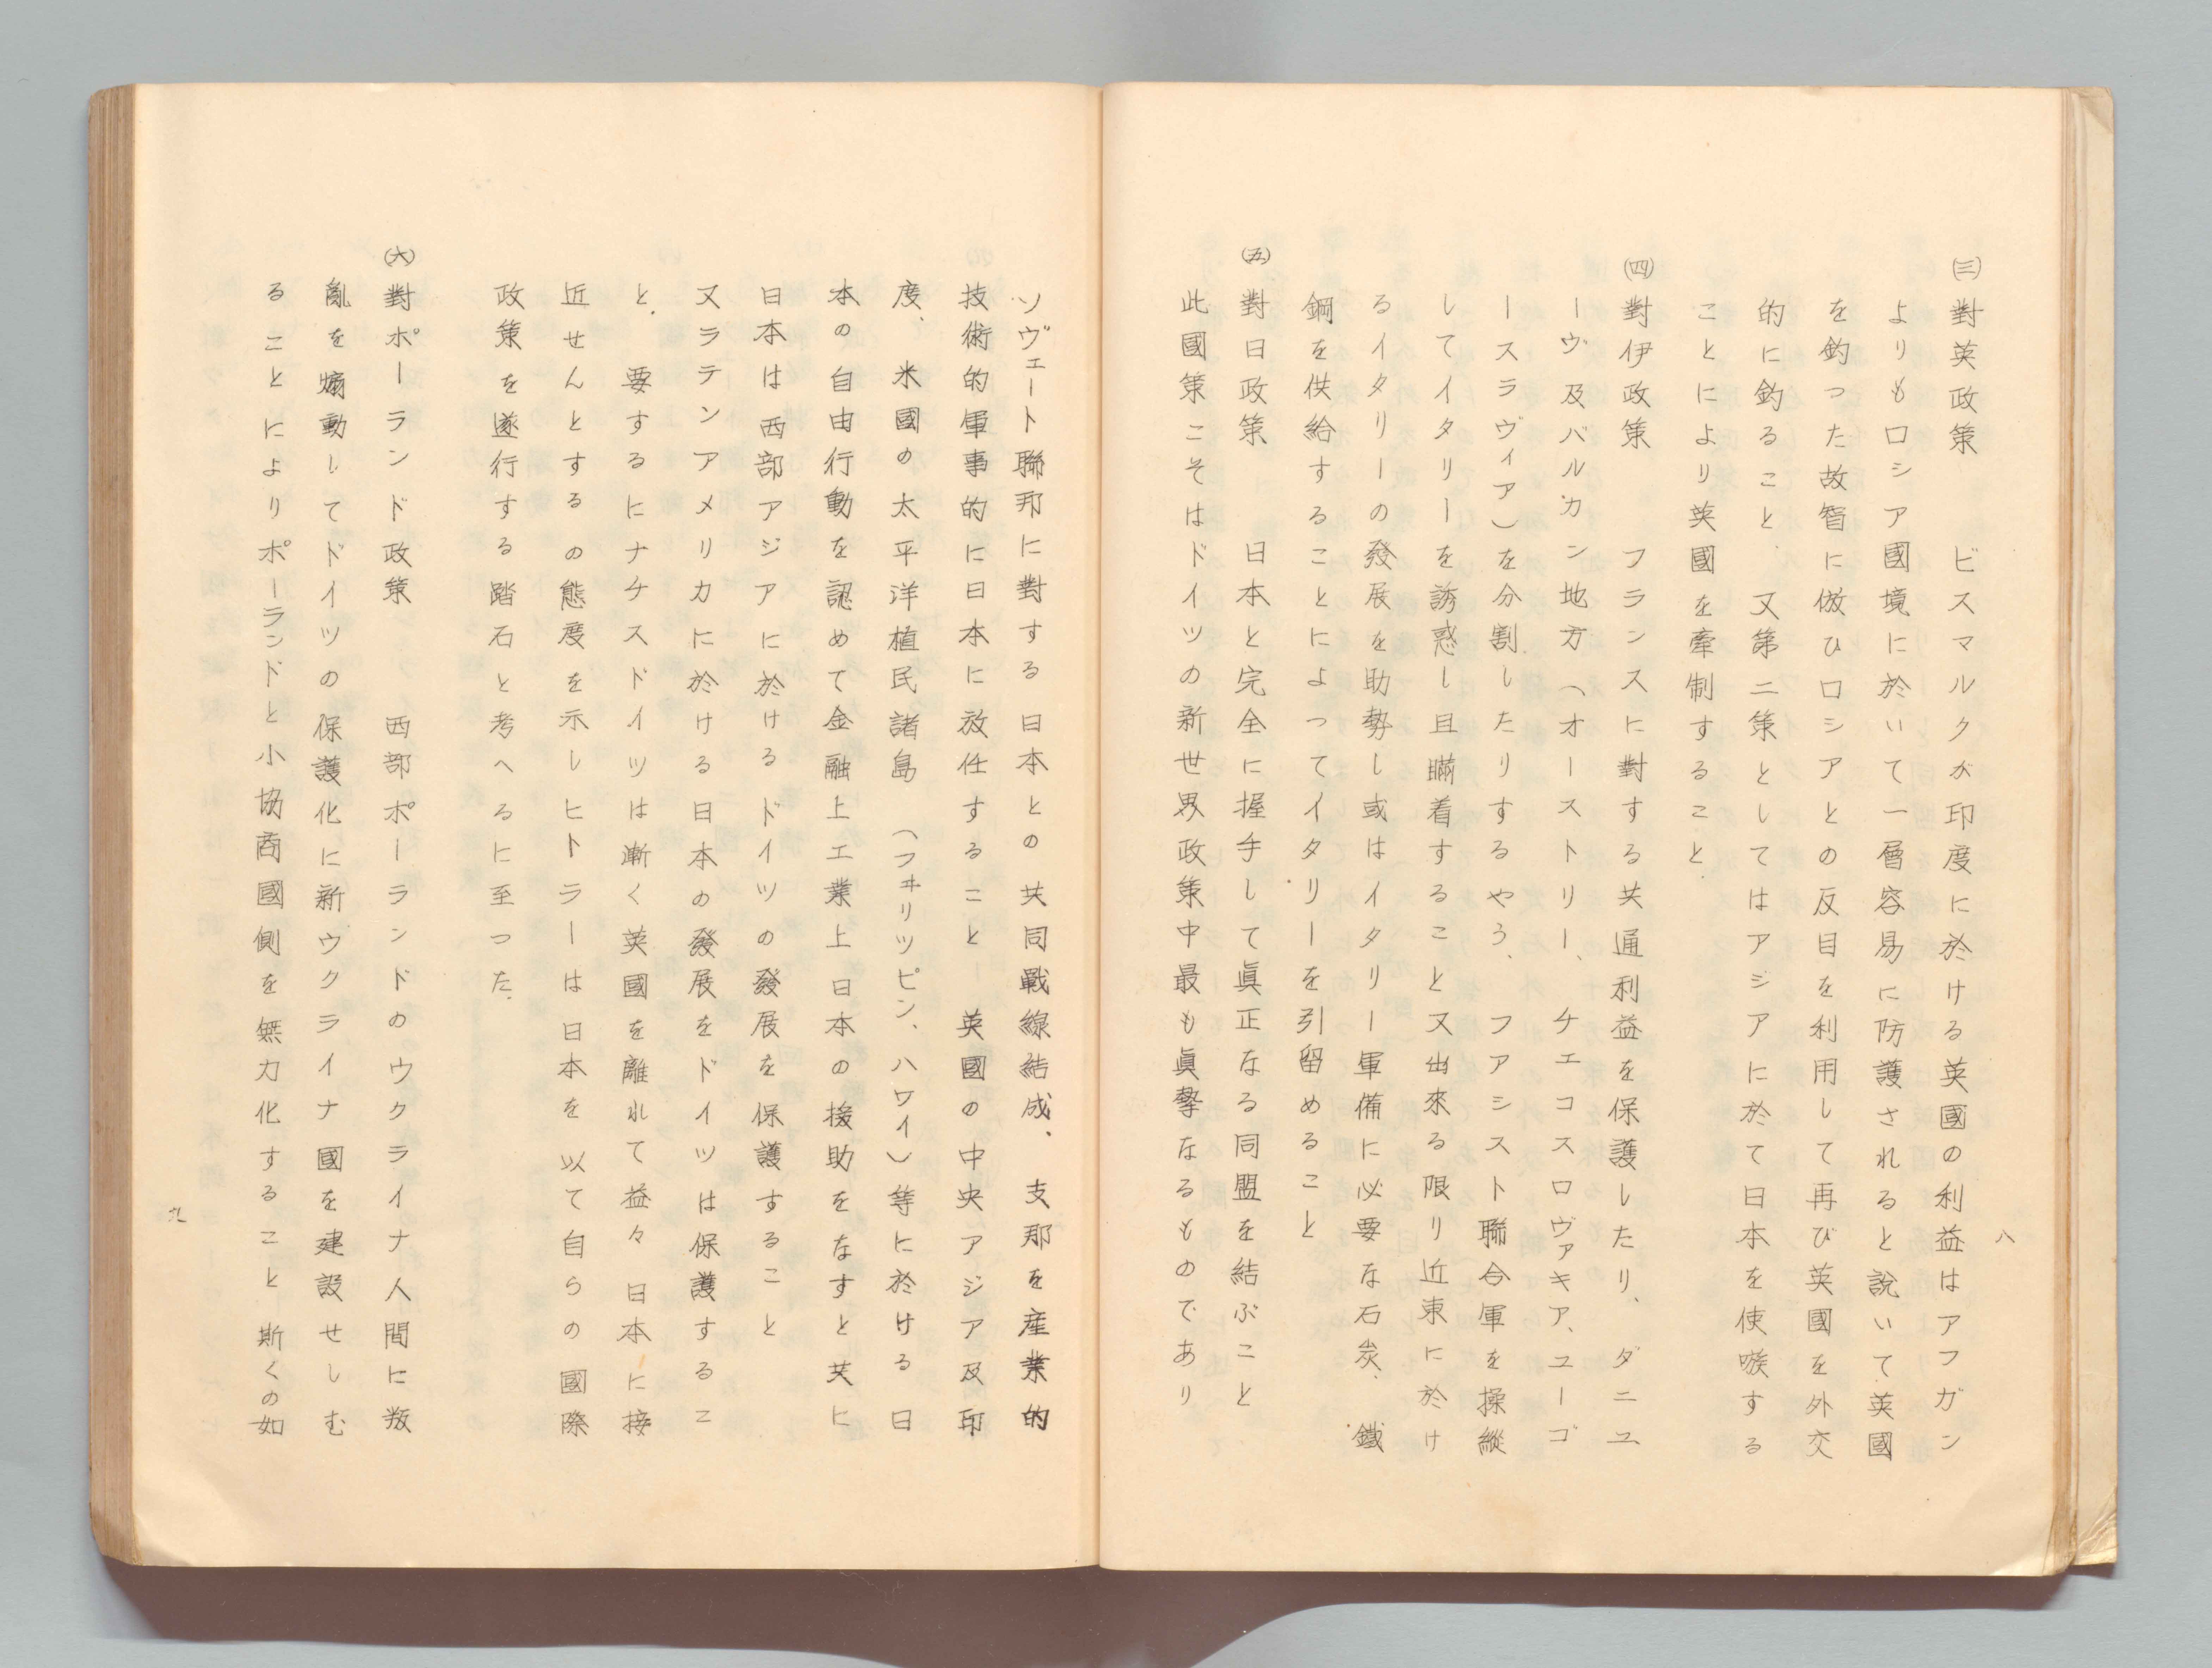 八
㈢對英政策　ビスマルクが印度に於ける英國の利益はアフガン
よりもロシア國境に於いて一層容易に防護されると說いて英國
を釣つた故智に倣ひロシアとの反目を利用して再び英國を外交
的に釣ること、又第二策としてはアジアに於て日本を使嗾する
ことにより英國を牽制すること、
㈣對伊政策　フランスに對する共通利益を保護したり、ダニユ
ーヴ及バルカン地方（オーストリー、チエコスロヴァキア、ユーゴ
ースラヴィア）を分割したりするやう、フアシスト聯合軍を操縱
してイタリーを誘惑し且瞞着すること又出來る限り近東に於け
るイタリーの發展を助勢し或はイタリー軍備に必要な石炭、鐵
鋼を供給することによつてイタリーを引留めること
㈤對日政策　日本と完全に握手して眞正なる同盟を結ぶこと
此國策こそはドイツの新世界政策中最も眞摯なるものであり
ソヴェート聯邦に對する日本との共同戰線結成、支那を產業的
技術的軍事的に日本に放任すること　英國の中央アジア及印
度、米國の太平洋植民諸島（フヰリツピン、ハワイ）等に於ける日
本の自由行動を認めて金融上工業上日本の援助をなすと共に
日本は西部アジアに於けるドイツの發展を保護すること
又ラテンアメリカに於ける日本の發展をドイツは保護するこ
と、要するにナチスドイツは漸く英國を離れて益々日本に接
近せんとするの態度を示しヒトラーは日本を以て自らの國際
政策を遂行する踏石と考へるに至つた、
㈥對ポーランド政策　西部ポーランドのウクライナ人間に叛
亂を煽動してドイツの保護化に新ウクライナ國を建設せしむ
ることによりポーランドと小協商國側を無力化すること斯くの如
九